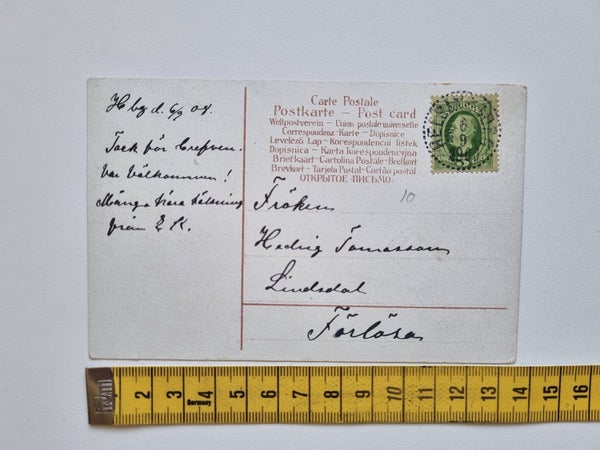 Hbg d. 6/9 08.
Tack för brefven.
Var Välkommen!
Många kära hälsning
från E K.
Carte Postale
Postkarte – Post card
Weltpostverein – Union postale universelle
Correspondenz-Karte – Dopisnice
Levelező Lap – Korespondencni listek
Dopisnica – Karta korespondencyjna
Briefkaart – Cartolina Postale – Brefkort
Brevkort – Tarjeta Postal – Cartão postal
ОТКРЫТОЕ ПИСЬМО.
10
Fröken
Hedvig Tomasson
Lindsdal
Förlösa
2 3 4 5 6 7 8 9 10 11 12 13 14 15 16
Germany